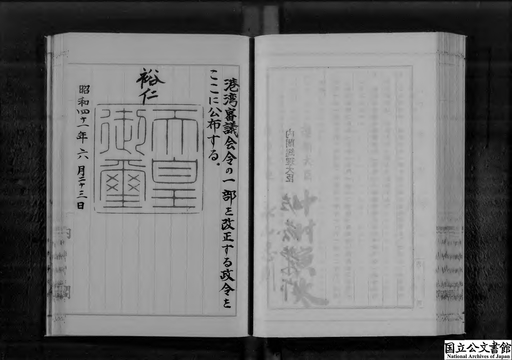 港湾審議会令の一部を改正する政令を
ここに公布する。
裕仁
天皇
御璽
昭和四十一年六月二十三日
内閣総理大臣
国立公文書館
National Archives of Japan